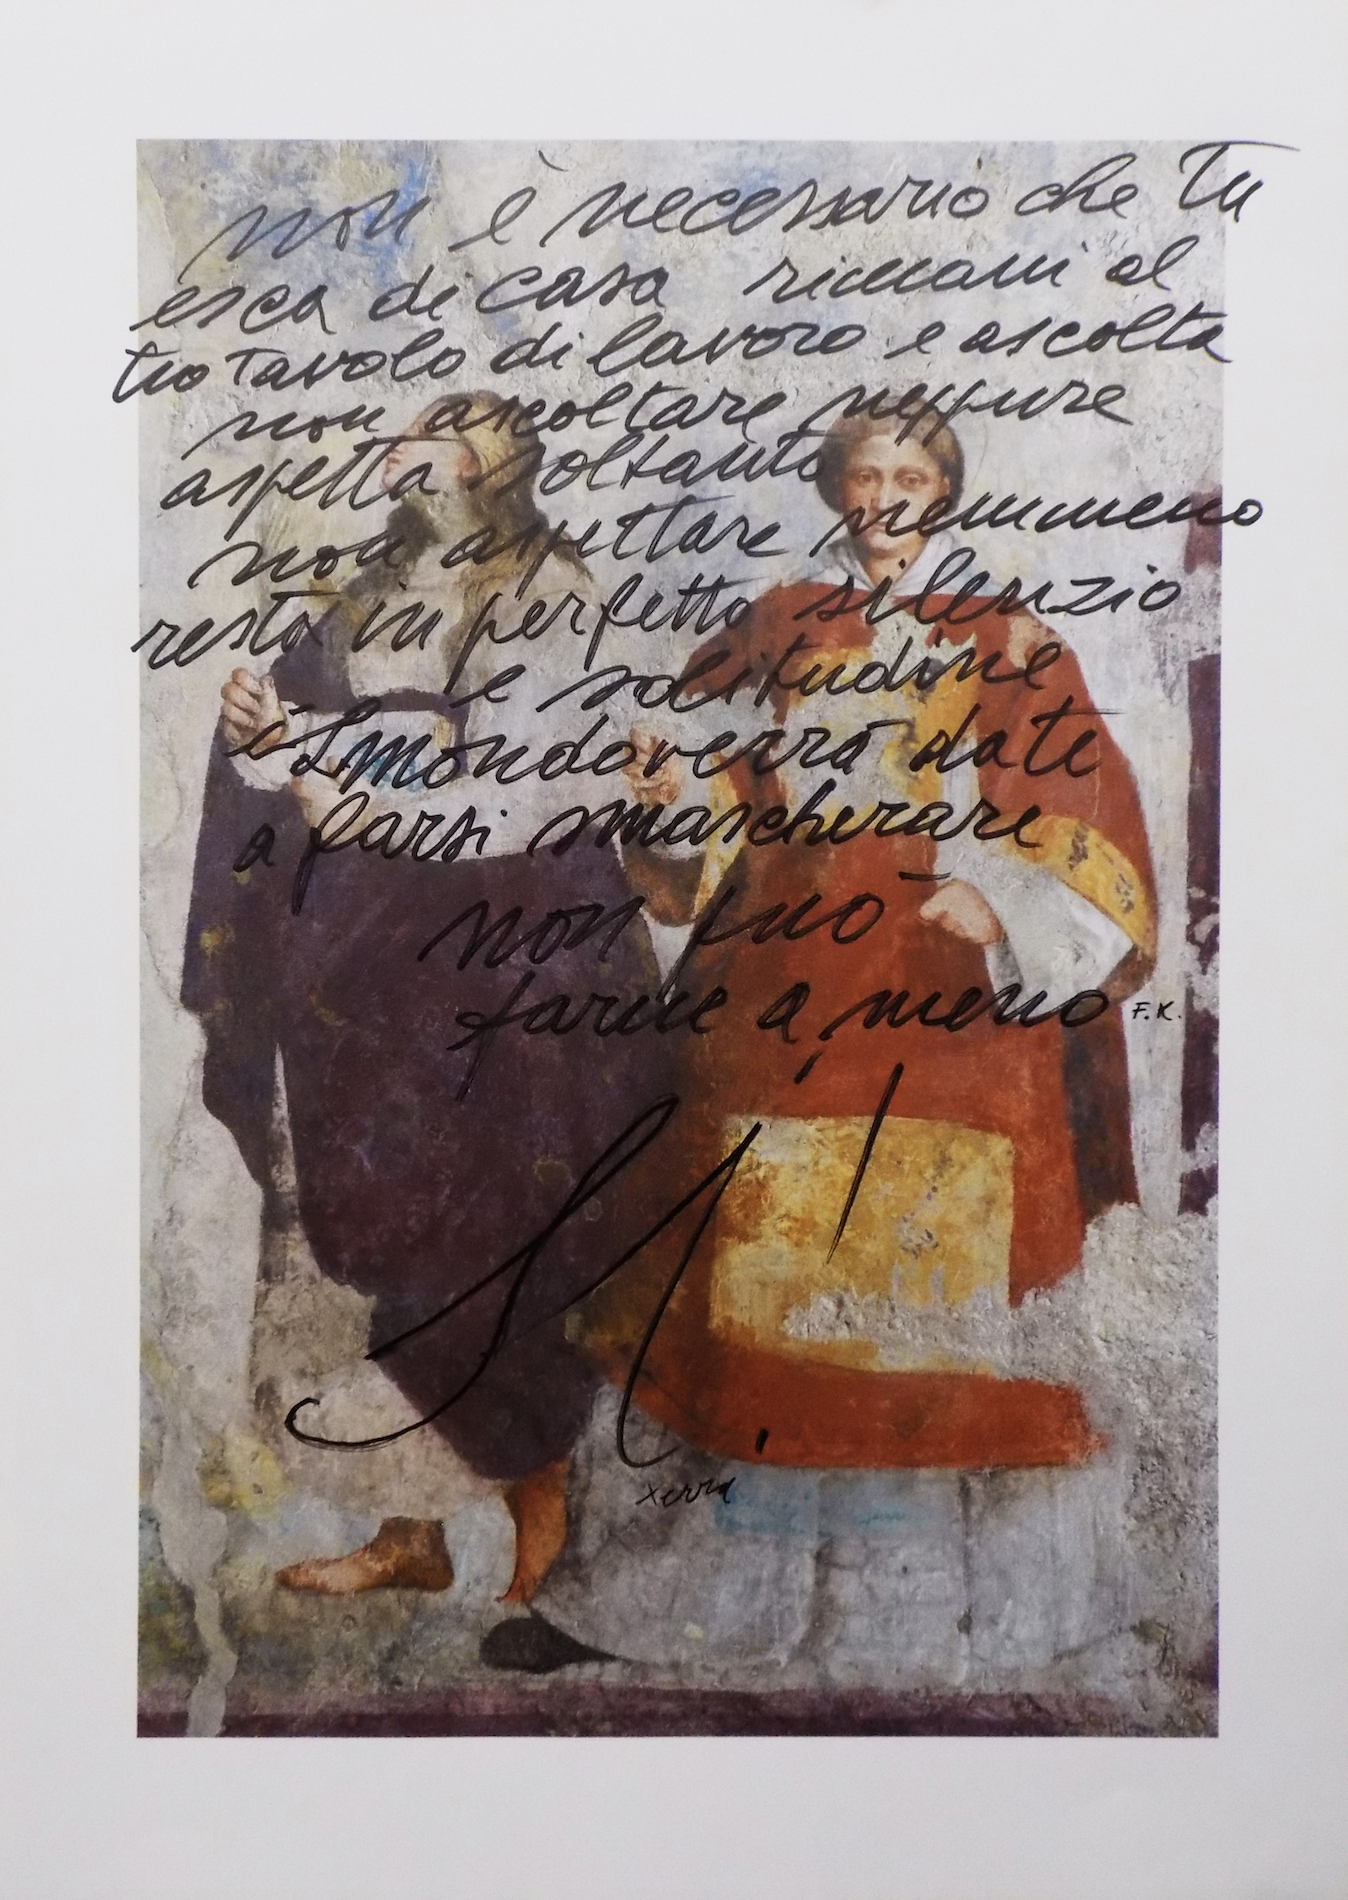 non è necessario che tu
esca di casa rimani al
tuo tavolo di lavoro e ascolta
non ascoltare neppure
aspetta soltanto
non aspettare nemmeno
resta in perfetto silenzio
e solitudine
il mondo verrà da te
a farsi smascherare
non può
farne a meno F.K.
xerra